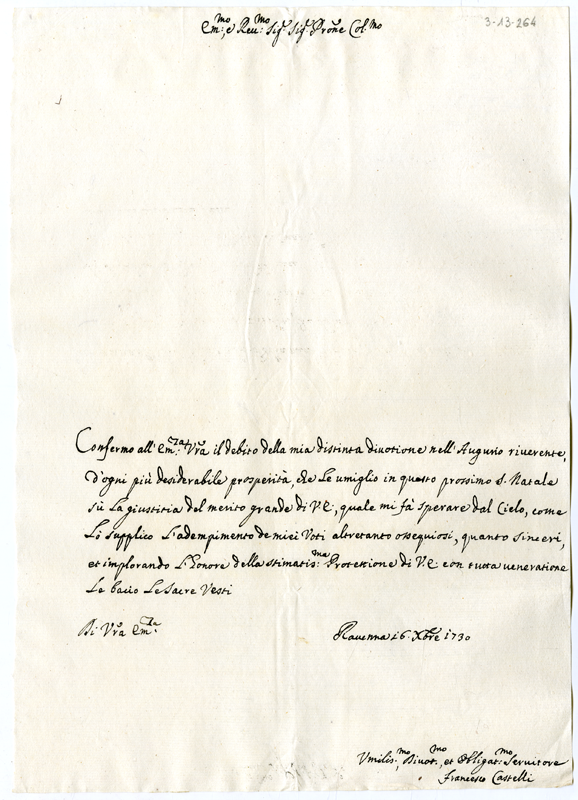 3-13-264
Em:mo e Reu:mo Sig.r Sig.r Prōne Col.mo
Confermo all' Em:za Vrā il debito della mia distinta diuotione nell'Augurio riuerente,
d'ogni più desiderabile prosperità, che Le umiglio in questo prossimo S. Natale
sù La giustitia del merito grande di V.E, quale mi fà sperare dal Cielo, come
Lo supplico L'adempimento de miei Voti altretanto ossequiosi, quanto sinceri,
et implorando L'Honore della stimatis:ma Protettione di V.E con tutta ueneratione
Le bacio Le Sacre Vesti
Di Vrā Em:za
Rauenna 16. Xbre 1730
Vmilis:mo, Diuot:mo, et Obligat:mo Seruitore
Francesco Castelli